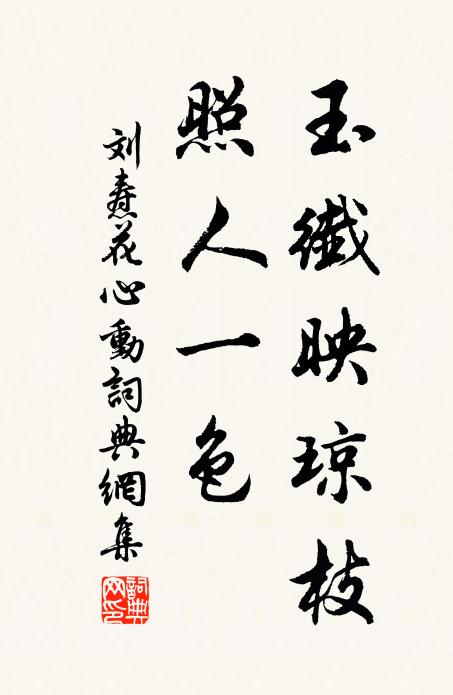 玉纖映琼枝
照人一色
刘焘花心動詞典網集
詞典网印